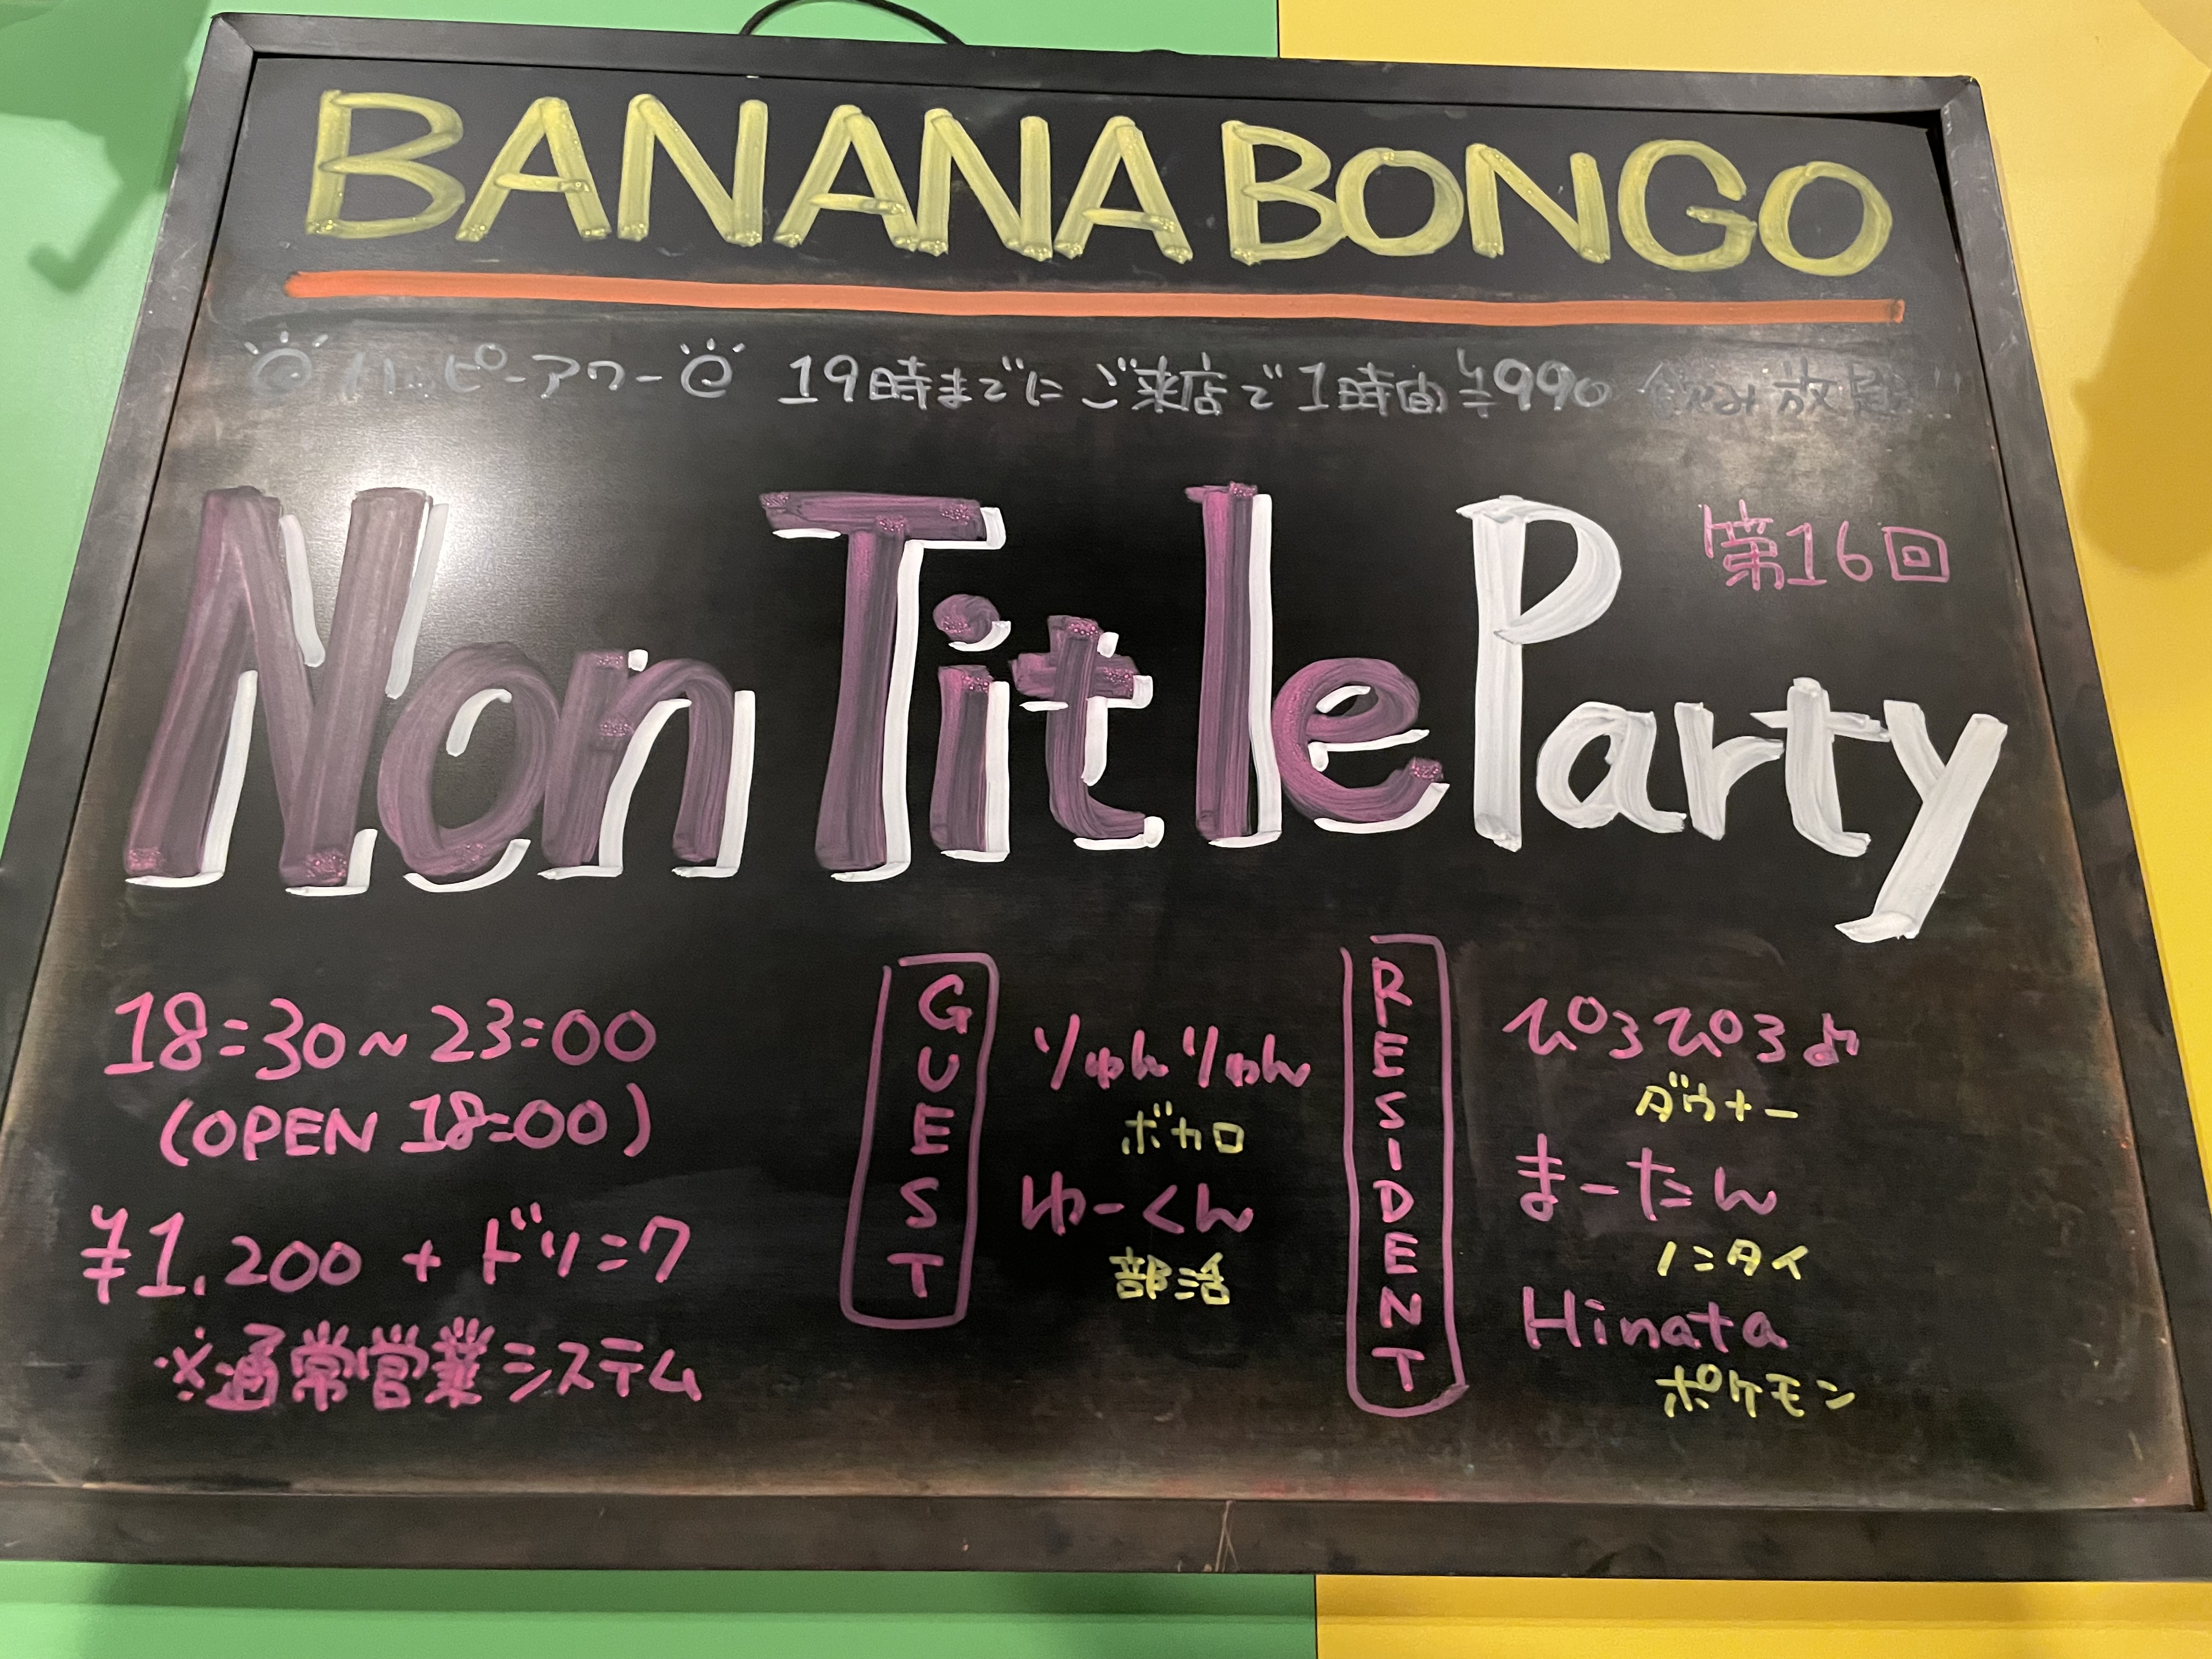 BANANA BONGO
ハッピーアワー 19時までにご来店で1時間¥990 飲み放題!!
Non Title Party 第16回
18:30~23:00
(OPEN 18:00)
¥1,200 + ドリンク
※通常営業システム
GUEST
りゅんりゅん
ボカロ
ゆーくん
部活
RESIDENT
ぴろぴろ♪
ダウナー
まーたん
ノンタイ
Hinata
ポケモン